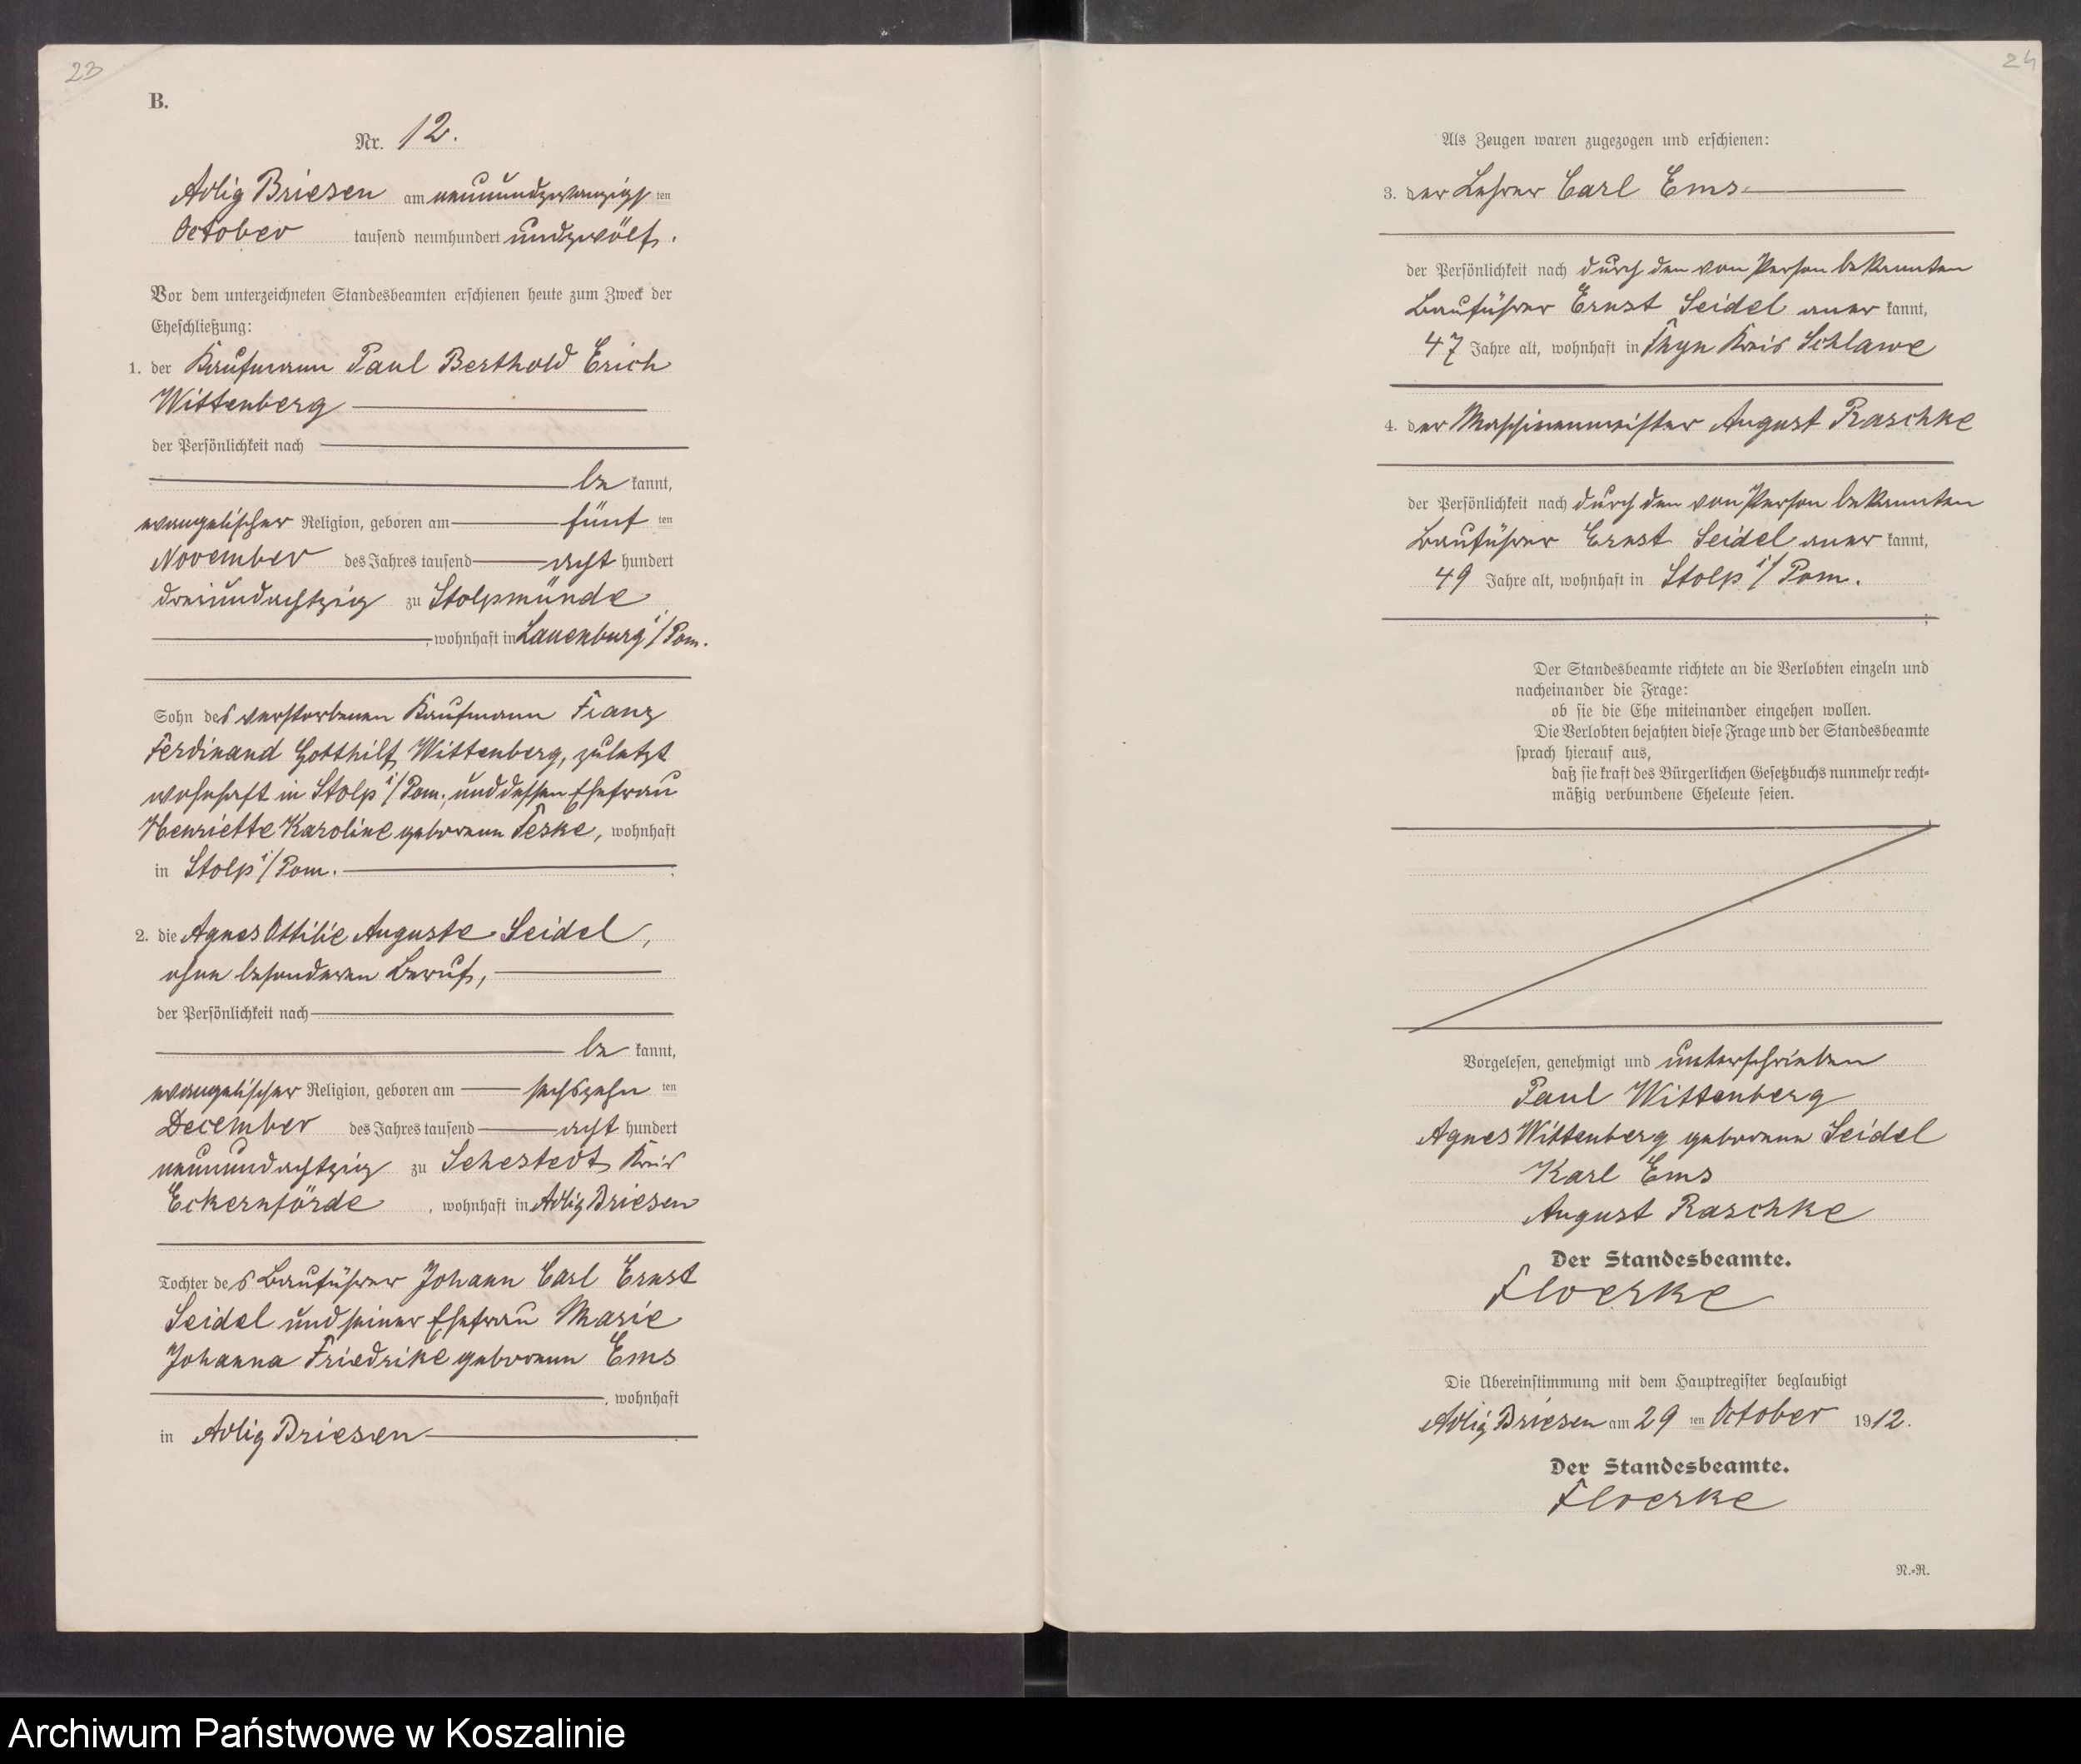 23
B.
Nr. 12.
Adlig Briesen am neunundzwanzigsten
October tausend neunhundert undzwölf.
Vor dem unterzeichneten Standesbeamten erschienen heute zum Zweck der
Eheschließung:
1. der Kaufmann Paul Berthold Erich
Wittenberg
der Persönlichkeit nach
be kannt,
evangelischer Religion, geboren am fünf ten
November des Jahres tausend acht hundert
dreiundachtzig zu Stolpmünde
, wohnhaft in Lauenburg i/Pom.
Sohn des verstorbenen Kaufmann Franz
Ferdinand Gotthilf Wittenberg, zuletzt
wohnhaft in Stolp i/Pom., und dessen Ehefrau
Henriette Karoline geborenen Feske, wohnhaft
in Stolp i/Pom.
2. die Agnes Ottilie Auguste Seidel,
ohne besonderen Beruf,
der Persönlichkeit nach
be kannt,
evangelischer Religion, geboren am sechszehn ten
December des Jahres tausend acht hundert
neunundachtzig zu Sehestedt, Kreis
Eckernförde, wohnhaft in Adlig Briesen
Tochter des Bauführer Johann Carl Ernst
Seidel und seiner Ehefrau Marie
Johanna Friedrike geborenen Ems
, wohnhaft
in Adlig Briesen
24
Als Zeugen waren zugezogen und erschienen:
3. der Lehrer Carl Ems.
der Persönlichkeit nach durch den von Person bekannten
Bauführer Ernst Seidel aner kannt,
47 Jahre alt, wohnhaft in Thyn Kreis Schlawe
4. der Maschinenmeister August Raschke
der Persönlichkeit nach durch den von Person bekannten
Bauführer Ernst Seidel aner kannt,
49 Jahre alt, wohnhaft in Stolp i/Pom.
Der Standesbeamte richtete an die Verlobten einzeln und
nacheinander die Frage:
ob sie die Ehe miteinander eingehen wollen.
Die Verlobten bejahten diese Frage und der Standesbeamte
sprach hierauf aus,
daß sie kraft des Bürgerlichen Gesetzbuchs nunmehr recht-
mäßig verbundene Eheleute seien.
Vorgelesen, genehmigt und unterschrieben
Paul Wittenberg
Agnes Wittenberg geborenen Seidel
Karl Ems
August Raschke
Der Standesbeamte.
Floerke
Die Übereinstimmung mit dem Hauptregister beglaubigt
Adlig Briesen am 29 ten October 1912.
Der Standesbeamte.
Floerke
N.-R.
Archiwum Państwowe w Koszalinie